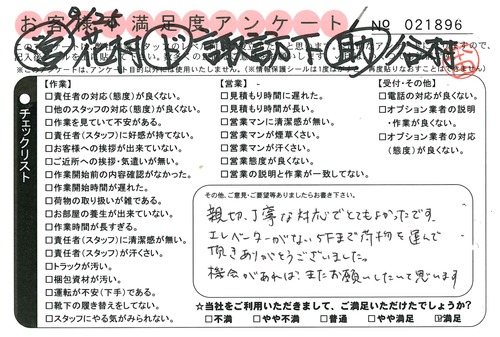 お客様満足度アンケート
9/25
NO 021896
宮 花村 ド 諏訪下 助 谷村
※このアンケートは、アンケート目的以外には使用いたしません。
チェックリスト
【作業】
□責任者の対応(態度)が良くない。
□他のスタッフの対応(態度)が良くない。
□作業を見ていて不安がある。
□責任者(スタッフ)に好感が持てない。
□お客様への挨拶が出来ていない。
□ご近所への挨拶・気遣いが無い。
□作業開始前の内容確認がなかった。
□作業開始時間が遅れた。
□荷物の取り扱いが雑である。
□お部屋の養生が出来ていない。
□作業時間が長すぎる。
□責任者(スタッフ)に清潔感が無い。
□責任者(スタッフ)が汗くさい。
□トラックが汚い。
□梱包資材が汚い。
□運転が不安(下手)である。
□靴下の履き替えをしてない。
□スタッフにやる気がみられない。
【営業】
□見積もり時間に遅れた。
□見積もり時間が長い。
□営業マンに清潔感が無い。
□営業マンが煙草くさい。
□営業マンが汗くさい。
□営業態度が良くない。
□営業の説明と作業が一致してない。
【受付・その他】
□電話の対応が良くない。
□オプション業者の説明
・作業が良くない。
□オプション業者の対応
(態度)が良くない。
その他、ご意見・ご要望等ありましたらお書き下さい。
親切、丁寧な対応でとてもよかったです。
エレベーターがない5Fまで荷物を運んで
頂きありがとうございました。
機会があれば、またお願いしたいと思います
★当社をご利用いただきまして、ご満足いただけたでしょうか?
□不満 □やや不満 □普通 □やや満足 ☑満足